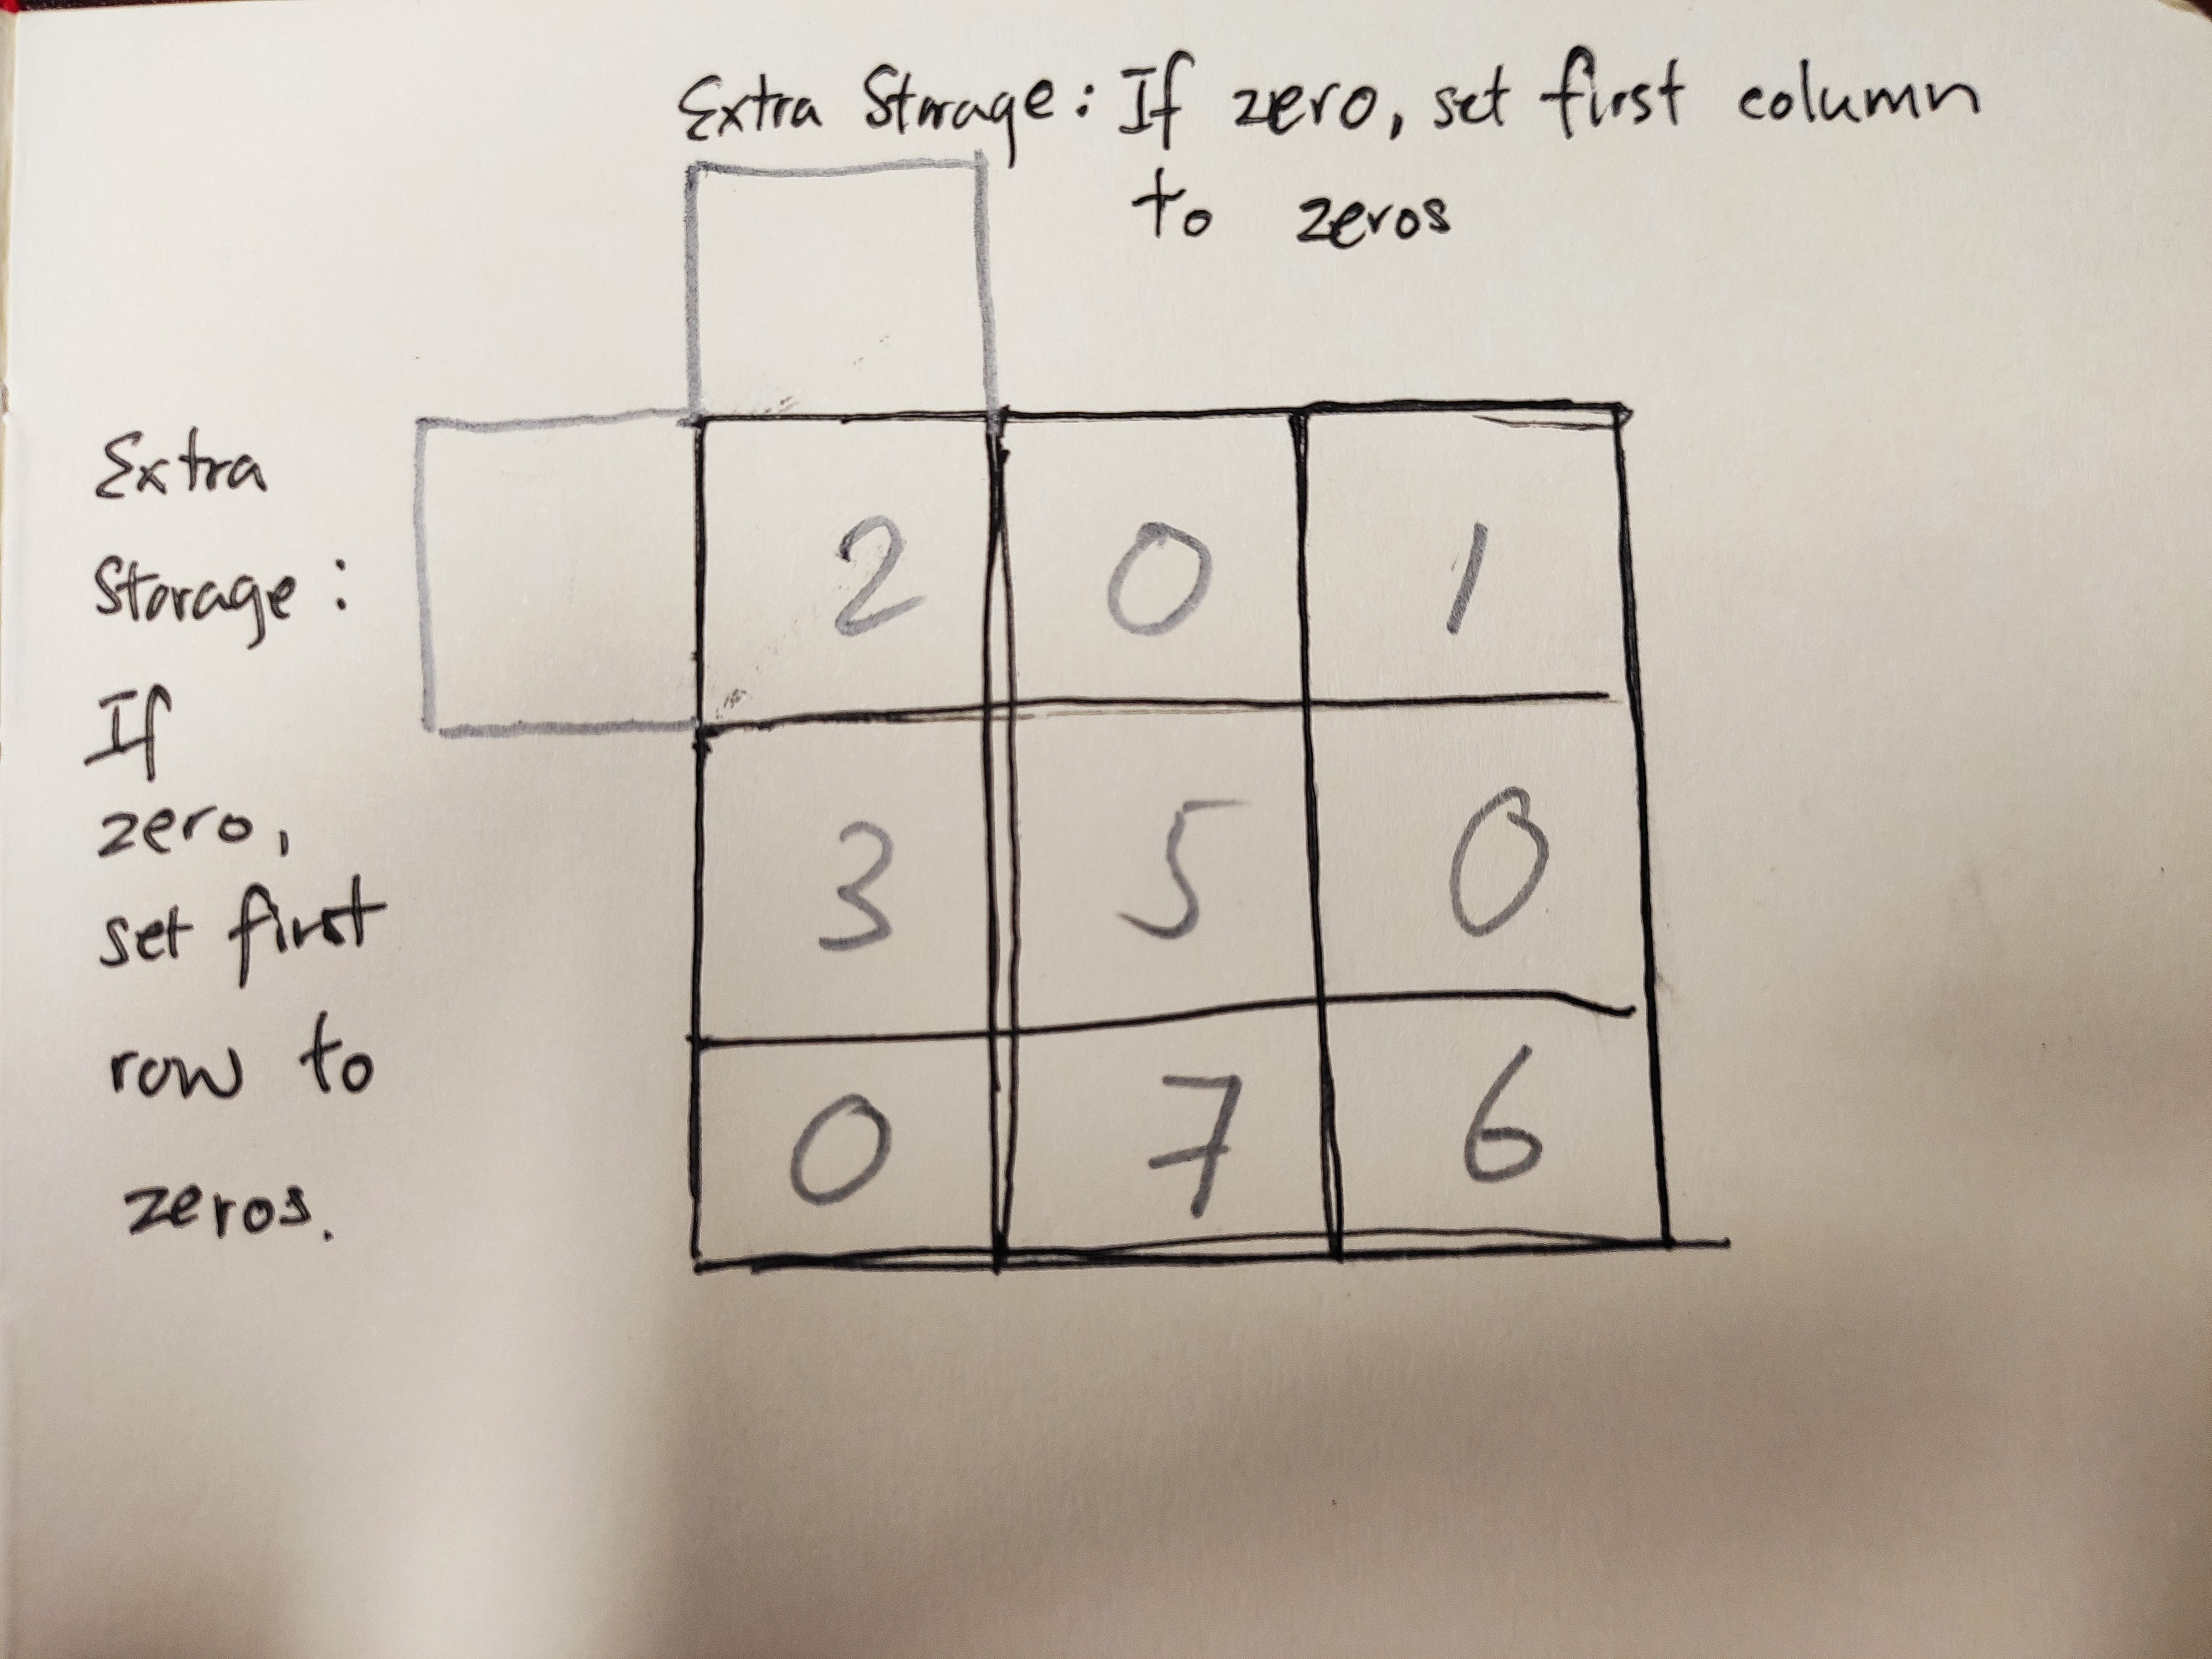 Extra Storage: If zero, set first column
to zeros
Extra
Storage:
If
zero,
set first
row to
zeros.
2 0 1
3 5 0
0 7 6